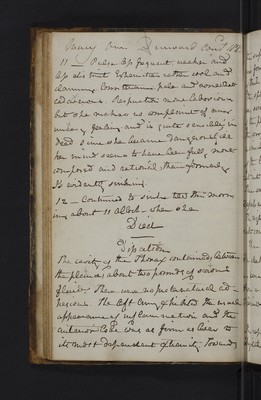 11 — Pulse less frequent weaker and
less distinct Extremities rather cool and
clammy Countenance pale and somewhat
cadaverous. Respiration more laborious
but she makes no complaint of any
uneasy feeling and is quite sensible, in
deed since she became dangerously ill
her mind seems to have been full, more
composed and rational, than formerly
Is evidently sinking.
12 — Continued to sink till this morn
ing about 11 oClock when she
Died
Dissection
The cavity of the Thorax contained, between
the pleuras about two pounds of serious
fluid. There were no preternatural ad-
hesions. The left Lung exhibited the usual
appearance of inflammation and the
anterior Lobe was as firm as liver to
its most dependent extremity. Towards